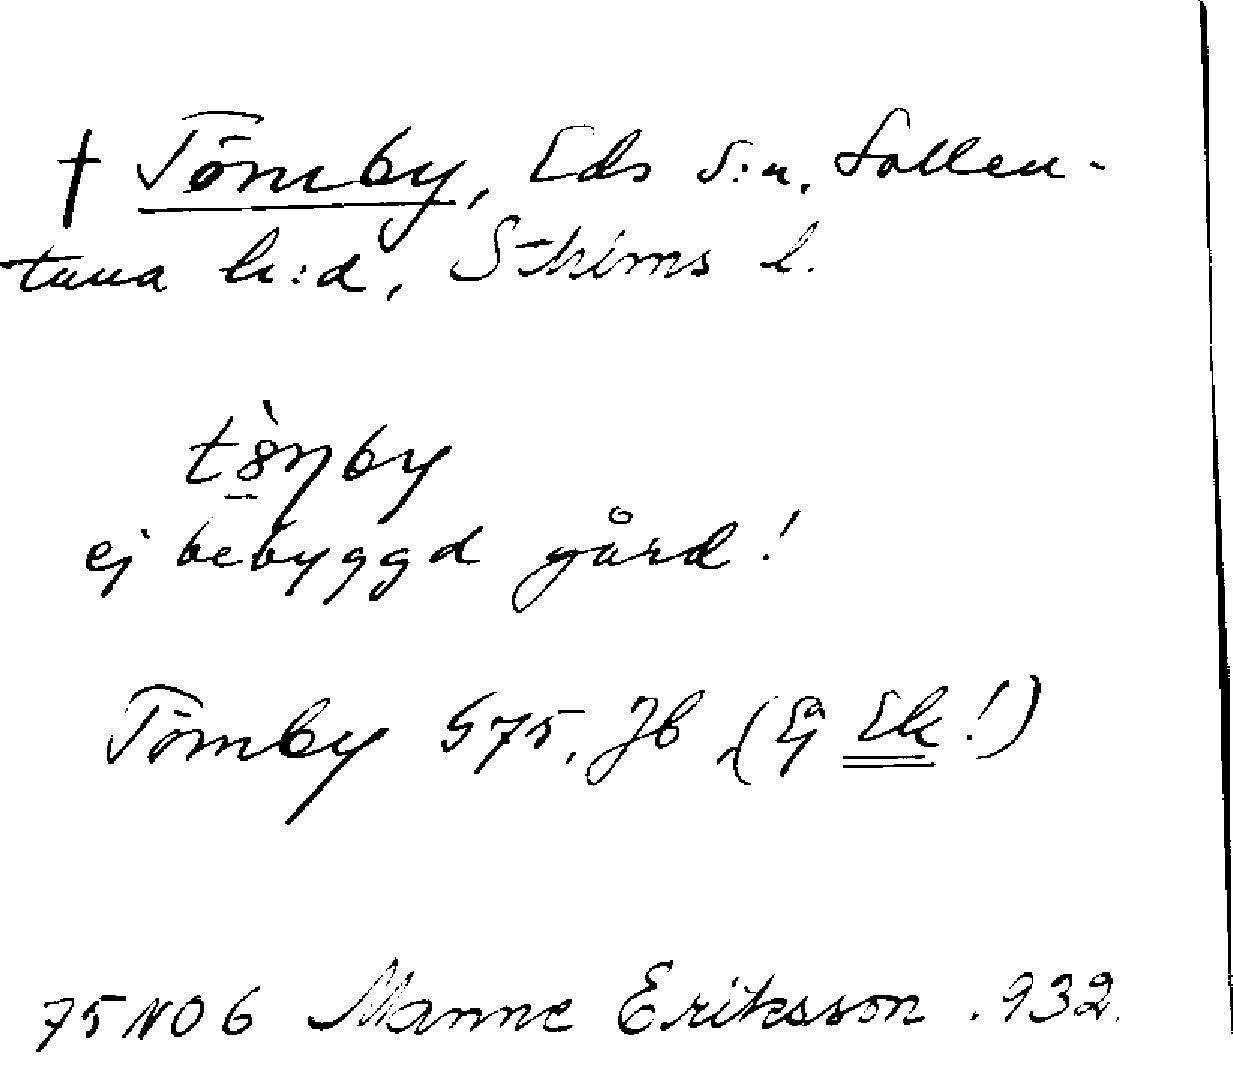 † Tömby, Eds s:n, Sollen-
tuna h:d, Sthlms l.
tö̀ŋby
ej bebyggd gård!
Tömby G75, Jb (Ej Ek!)
75 NO 6 Manne Eriksson . 932.